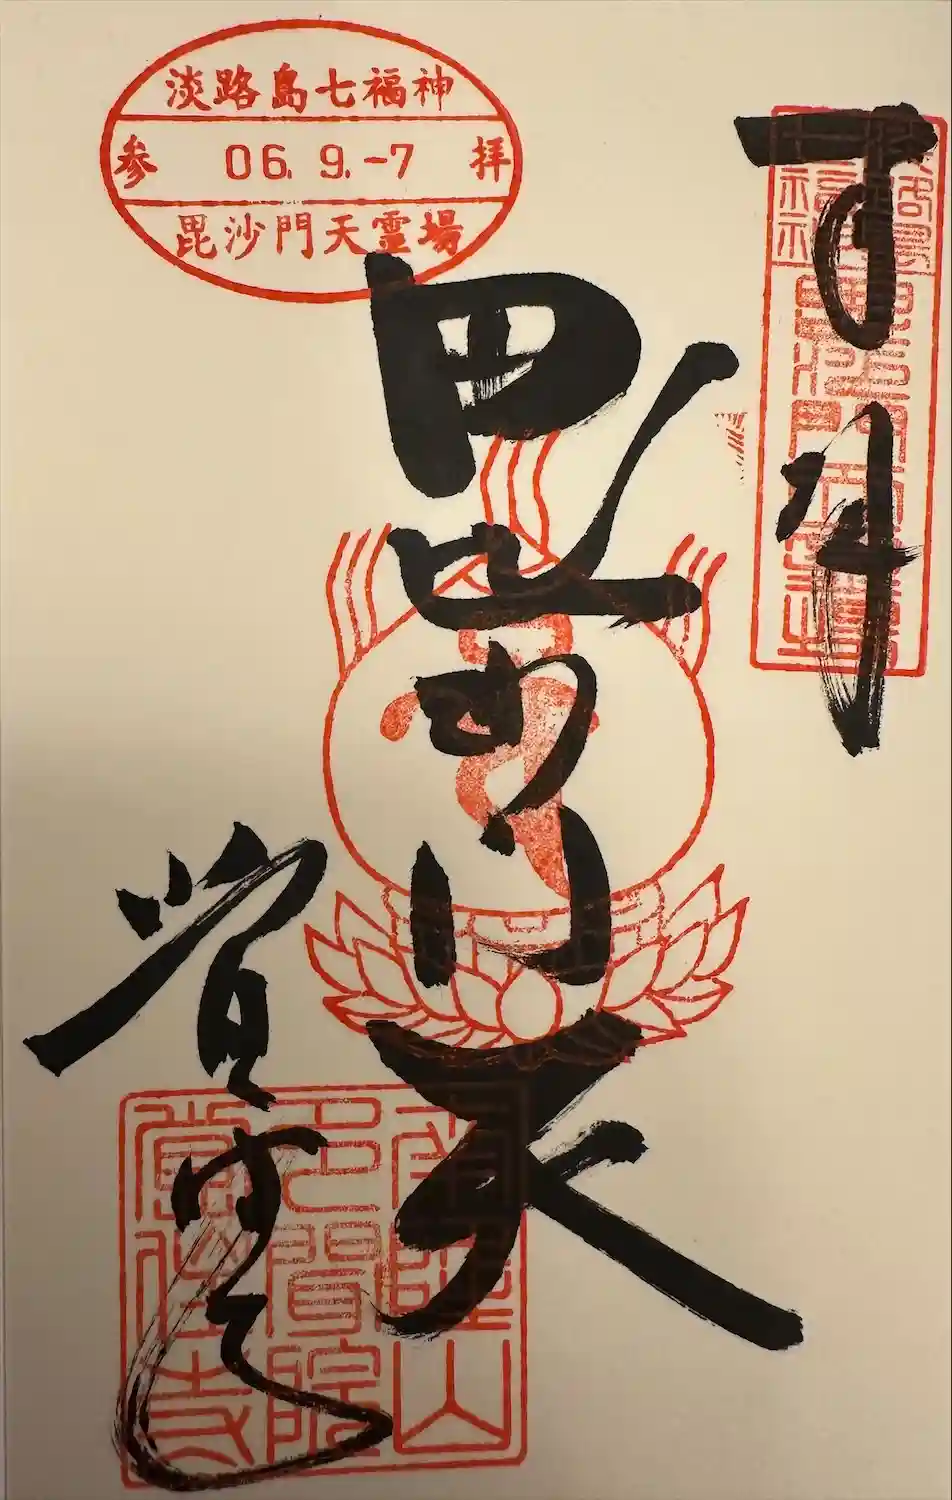 淡路島七福神
参 06.9.-7 拝
毘沙門天霊場
奉拝
毘沙門天
覚住寺
覺住寺